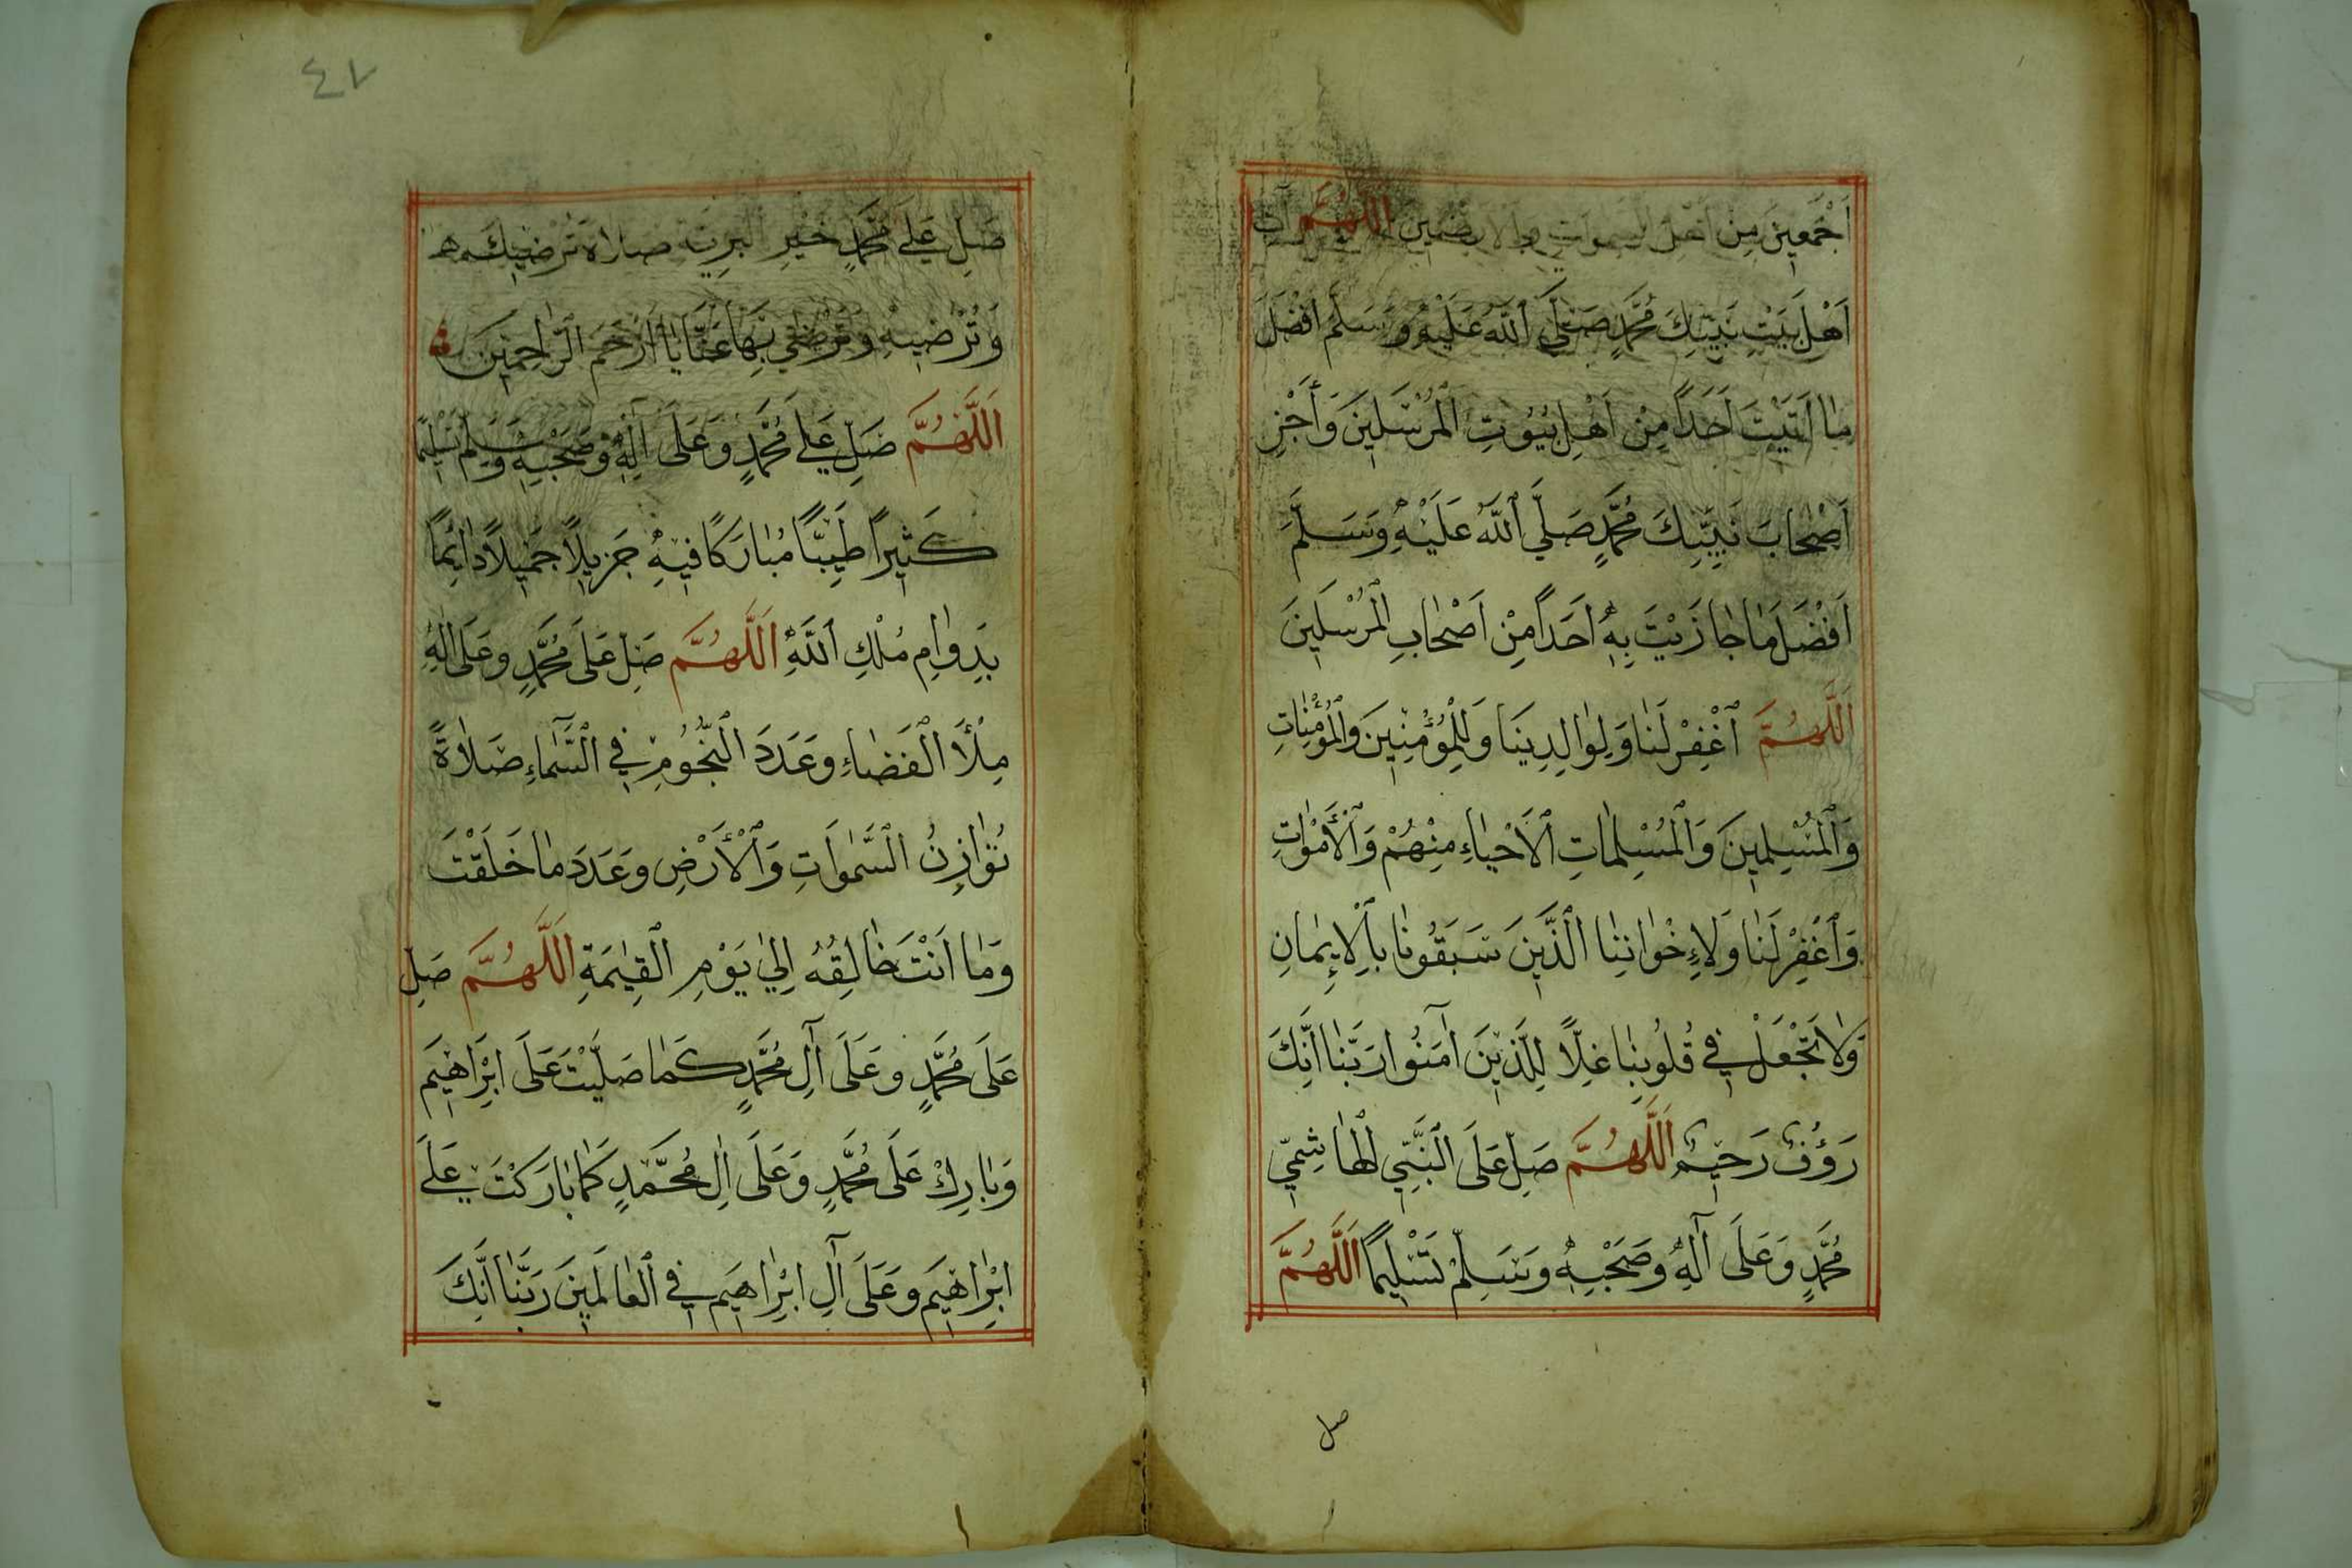 اَجْمَعِينَ مِنْ اَهْلِ السَّمٰوَاتِ وَالْاَرَضِينَ اَللّٰهُمَّ آتِ
اَهْلَ بَيْتِ نَبِيِّكَ مُحَمَّدٍ صَلَّي اللّٰهُ عَلَيْهِ وَسَلَّمَ اَفْضَلَ
مٰا اٰتَيْتَ اَحَدًا مِنْ اَهْلِ بُيُوتِ الْمُرْسَلِينَ وَأَجْزِ
اَصْحٰابَ نَبِيِّكَ مُحَمَّدٍ صَلَّي اللّٰهُ عَلَيْهِ وَسَلَّمَ
اَفْضَلَ مٰا جٰازَيْتَ بِهِ اَحَدًا مِنْ اَصْحٰابِ الْمُرْسَلِينَ
اَللّٰهُمَّ اَغْفِرْ لَنٰا وَلِوٰالِدِينَا وَلِلْمُؤْمِنِينَ وَالْمُؤْمِنٰاتِ
وَالْمُسْلِمِينَ وَالْمُسْلِمٰاتِ الْاَحْيٰاءِ مِنْهُمْ وَالْأَمْوٰاتِ
وَاَغْفِرْ لَنٰا وَلِاِخْوٰانِنٰا الَّذِينَ سَبَقُونٰا بِالْاِيمٰانِ
وَلٰا تَجْعَلْ فِي قُلُوبِنٰا غِلًّا لِلَّذِينَ اٰمَنُوا رَبَّنٰا اِنَّكَ
رَؤُفٌ رَحِيمٌ اَللّٰهُمَّ صَلِّ عَلَى النَّبِيِّ الْهٰاشِمِيِّ
مُحَمَّدٍ وَعَلَى آلِهِ وَصَحْبِهِ وَسَلِّمْ تَسْلِيمًا اَللّٰهُمَّ
صل
٤٧
صَلِّ عَلَي مُحَمَّدٍ خَيْرِ الْبَرِيَّةِ صَلٰاةً تُرْضِيكَ
وَتُرْضِيهِ وَتَرْضٰي بِهٰا عَنّٰا يٰا اَرْحَمَ الرّٰاحِمِينَ
اَللّٰهُمَّ صَلِّ عَلَي مُحَمَّدٍ وَعَلَى آلِهِ وَصَحْبِهِ وَسَلِّمْ تَسْلِيمًا
كَثِيرًا طَيِّبًا مُبٰارَكًا فِيهِ جَزِيلًا جَمِيلًا دٰائِمًا
بِدَوٰامِ مُلْكِ اللّٰهِ اَللّٰهُمَّ صَلِّ عَلَى مُحَمَّدٍ وَعَلَى اٰلِهِ
مِلْأَ الْفَضٰاءِ وَعَدَدَ النُّجُومِ فِي السَّمٰاءِ صَلٰاةً
تُوٰازِنُ السَّمٰوَاتِ وَالْأَرْضِ وَعَدَدَ مٰا خَلَقْتَ
وَمٰا اَنْتَ خٰالِقُهُ اِلٰي يَوْمِ الْقِيٰمَةِ اَللّٰهُمَّ صَلِّ
عَلَى مُحَمَّدٍ وَعَلَى آلِ مُحَمَّدٍ كَمٰا صَلَّيْتَ عَلَى اِبْرَاهِيمَ
وَبٰارِكْ عَلَى مُحَمَّدٍ وَعَلَى اٰلِ مُحَمَّدٍ كَمٰا بٰارَكْتَ عَلَي
اِبْرٰاهِيمَ وَعَلَى آلِ اِبْرٰاهِيمَ فِي الْعٰالَمِينَ رَبَّنٰا اِنَّكَ